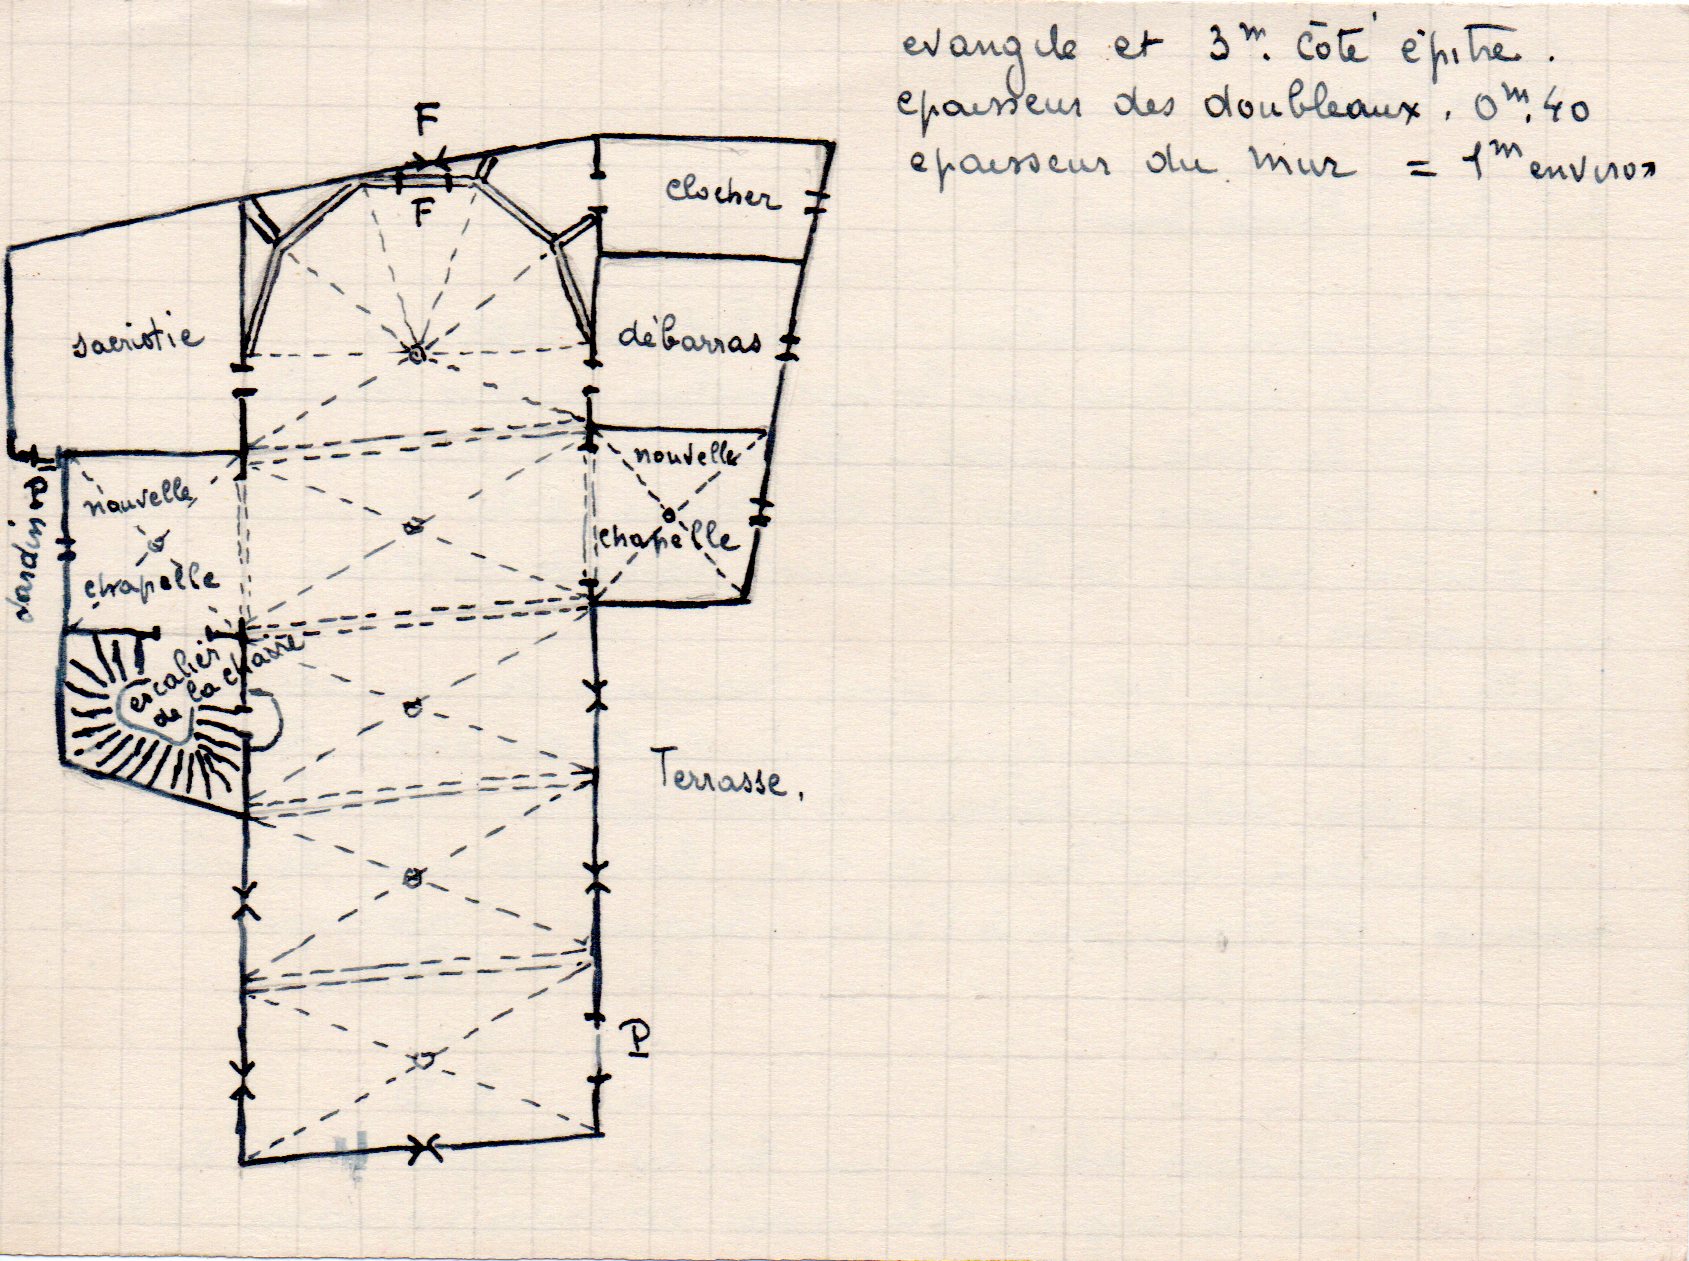 evangile et 3m. côté épitre.
epaisseur des doubleaux. 0m.40
epaisseur du mur = 1m environ
F
F
clocher
sacristie
débarras
nouvelle
chapelle
nouvelle
chapelle
P
Jardin
escalier
de la chasse
Terrasse.
P